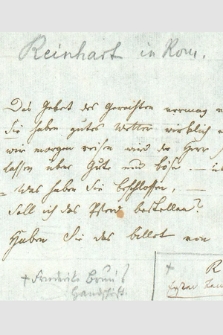 Reinhart in Rom.
Das Gebet des Gerechten vermag
Sie haben gutes Wetter wirklich
wir morgen reisen wird der Herr
lassen über Gute und Böse
Was haben Sie beschlossen,
Soll ich das Pferd bestellen?
Haben Sie das billet von
+ Friederike Brun's
Handschrift.
+
R